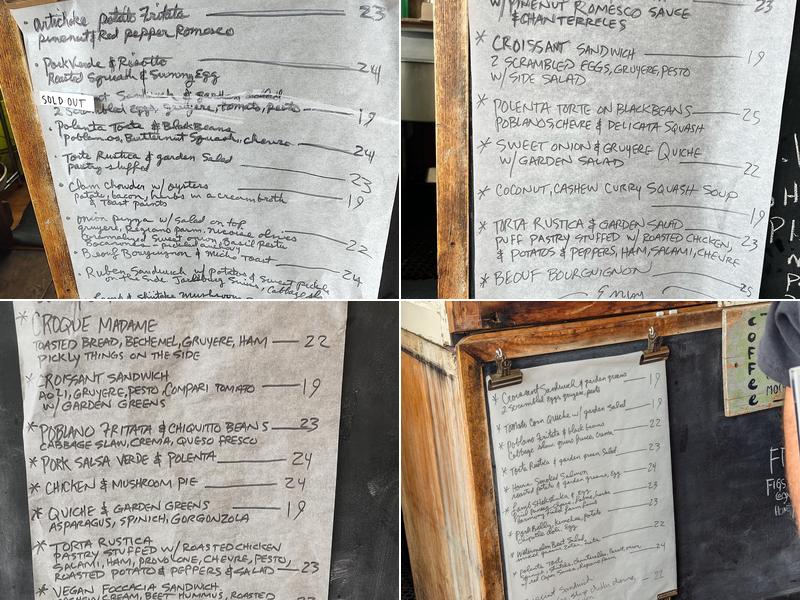 artichoke potato Fritata 23
pinenut & Red pepper Romesco
Pork Verde & Risotto 24
Roasted Squash & Sunny Egg
SOLD OUT
2 Scrambled eggs, gruyere, tomato, pesto 19
Polenta Torte & Black Beans
Poblanos, Butternut Squash, chevre 24
Torte Rustica & garden Salad
pastry stuffed 23
Clam Chowder w/ oysters 19
potato, bacon, herbs in a cream broth
& Toast points
onion pizza w/ Salad on top
gruyere, Regiano parm. nicoise olives
Caramelized Sweet onion, Basil Pesto 22
Beouf Bourguignon & Toast 24
Ruben Sandwich w/ Potatoes & Sweet pickle
on the side Jarlsburg Swiss, Cabbage
Mushroom
W/ PINENUT ROMESCO SAUCE 23
& CHANTERRELES
* CROISSANT SANDWICH 19
2 SCRAMBLED EGGS, GRUYERE, PESTO
W/ SIDE SALAD
* POLENTA TORTE ON BLACKBEANS 25
POBLANOS CHEVRE & DELICATA SQUASH
* SWEET ONION & GRUYERE QUICHE
W/ GARDEN SALAD 22
* COCONUT, CASHEW CURRY SQUASH SOUP
19
* TORTA RUSTICA & GARDEN SALAD
PUFF PASTRY STUFFED W/ ROASTED CHICKEN, 23
& POTATOES & PEPPERS, HAM, SALAMI, CHEVRE
* BEOUF BOURGUIGNON 25
* CROQUE MADAME
TOASTED BREAD, BECHEMEL, GRUYERE, HAM 22
PICKLY THINGS ON THE SIDE
* CROISSANT SANDWICH
AOLI, GRUYERE, PESTO, COMPARI TOMATO 19
W/ GARDEN GREENS
* POBLANO FRITATA & CHIQUITTO BEANS 23
CABBAGE SLAW, CREMA, QUESO FRESCO
* PORK SALSA VERDE & POLENTA 24
* CHICKEN & MUSHROOM PIE 24
* QUICHE & GARDEN GREENS 19
ASPARAGUS, SPINICH, GORGONZOLA
* TORTA RUSTICA
PASTRY STUFFED W/ ROASTED CHICKEN
SALAMI, HAM, PROVOLONE, CHEVRE, PESTO,
ROASTED POTATO & PEPPERS & SALAD 23
* VEGAN FOCCACIA SANDWICH
CASHEW CREAM, BEET HUMMUS, ROASTED
* Croissant Sandwich & garden greens 19
2 Scrambled eggs gruyere, pesto
* Tomato Corn Quiche w/ garden Salad 19
* Poblano Fritata & black beans 22
Cabbage Slaw queso fresco, Crema
* Torte Rustica & garden green Salad 23
* House Smoked Salmon 24
roasted potato & garden greens, Egg
* Lamb Shakshuka & Egg 23
* Pork Belly, Kimchee, potato 23
Chipotle aioli, Egg
* Watermelon Beet Salad 22
* Polenta Torte 24
Sandwich
22
COFFEE
FIGS